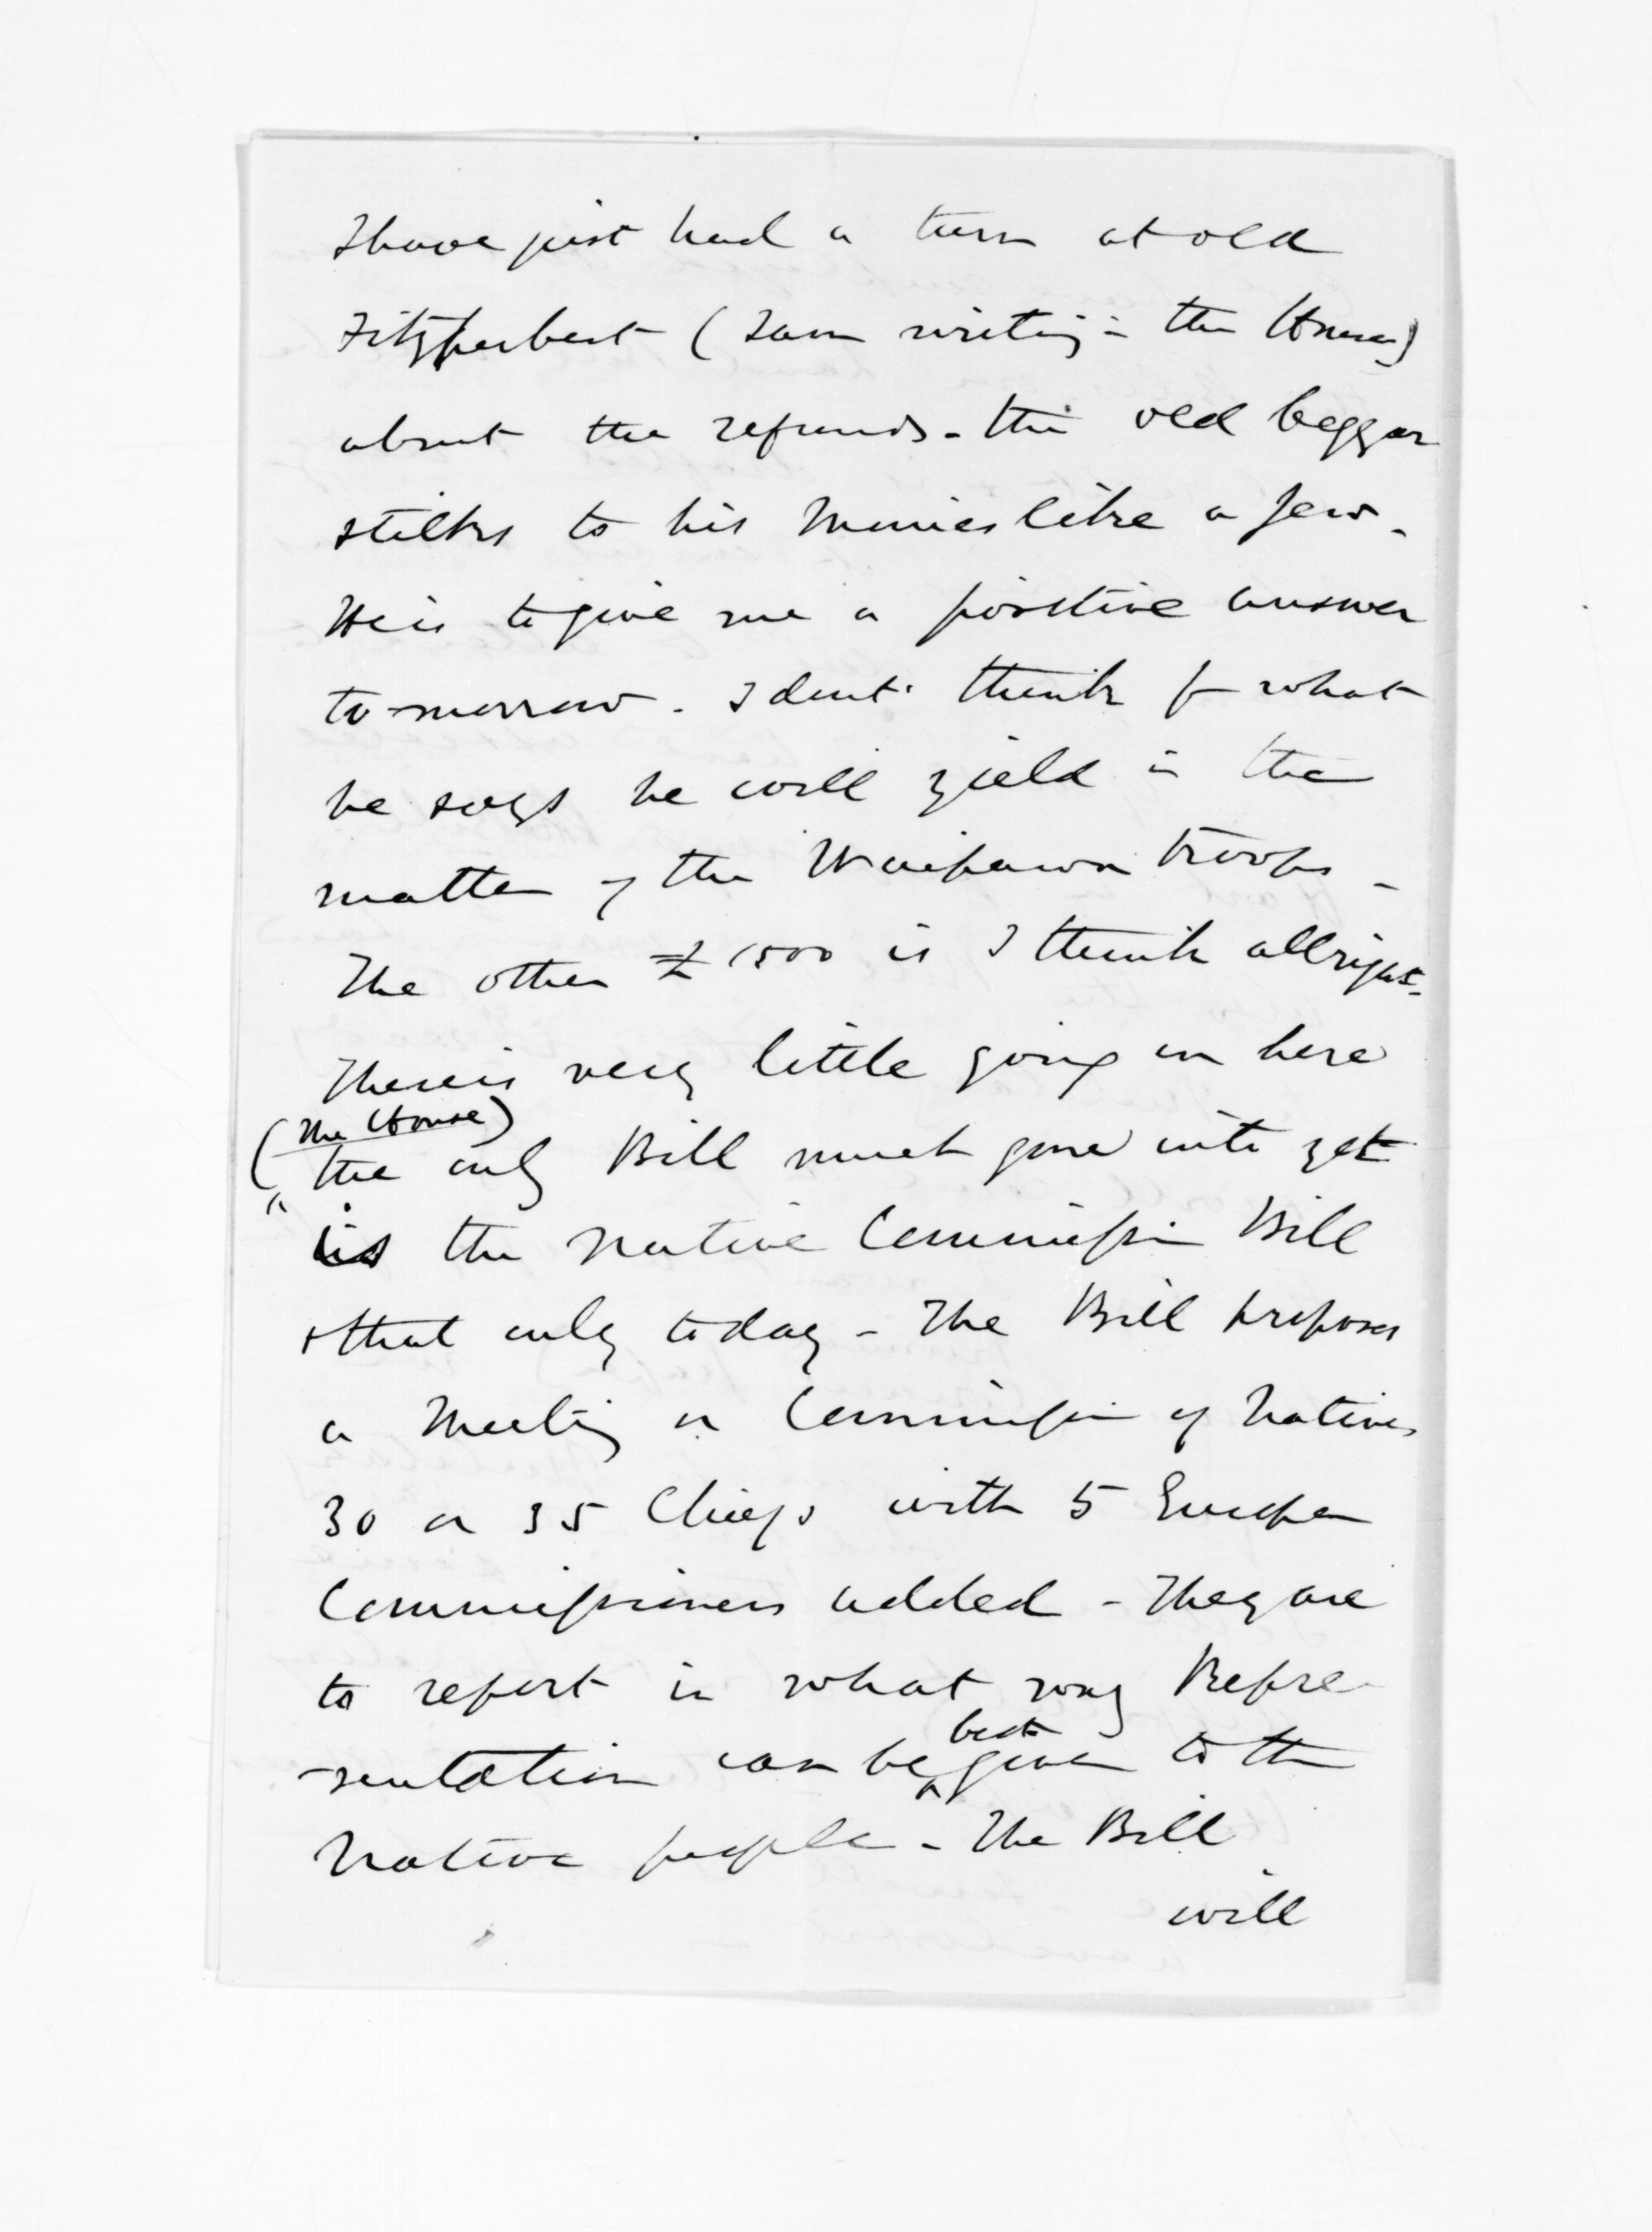 I have just had a turn at old
Fitzherbert (I am writing in the House)
about the refunds - the old beggar
sticks to his Monies like a Jew.
He is to give me a positive answer
to-morrow. I dont think fr what
he says he will yield in the
matter of the Waipawa troops -
The other £1500 is I think all right -
There is very little going on here
(The House)
the only Bill much gone into yet
is the Native Commission Bill
& that only today - The Bill proposes
a Meeting or Commission of Natives
30 or 35 Chiefs with 5 European
Commissioners added - They are
to report in what way Repre-
-sentation can be best given to the
Native people - The Bill
will